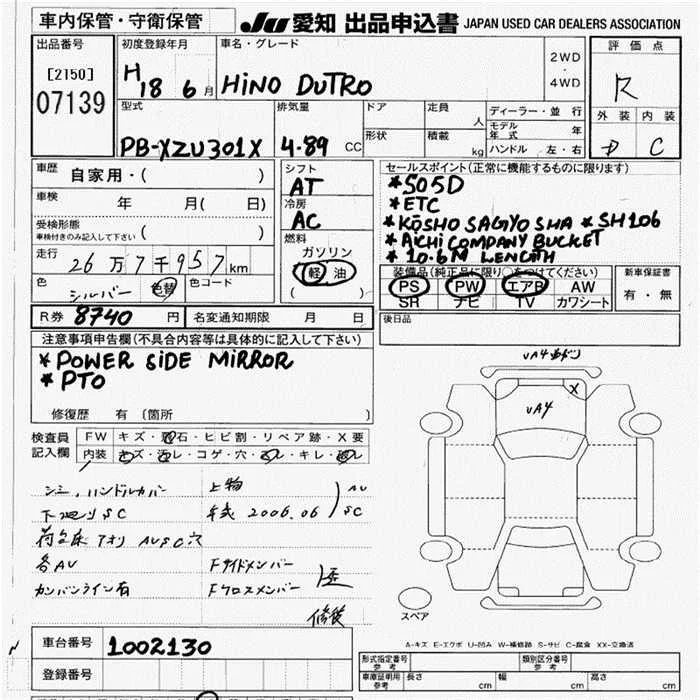 車内保管・守衛保管
JU 愛知 出品申込書 JAPAN USED CAR DEALERS ASSOCIATION
出品番号
[2150]
07139
初度登録年月
H 18 6 月
車名・グレード
HINO DUTRO
2WD
・
4WD
評価点
R
外装 内装
D C
型式
PB-XZU301X
排気量
4.89 CC
ドア
形状
定員
人
積載
kg
ディーラー・並行
モデル年式 年
ハンドル 左・右
車歴
自家用・( )
車検
年 月( 日)
受検形態
車検付きのみ記入して下さい ( )
走行
26万7千957km
色
シルバー
色替
色コード
シフト
AT
冷房
AC
燃料
ガソリン
軽 油
( )
セールスポイント(正常に機能するものに限ります)
*S05D
*ETC
*KOSHO SAGYO SHA *SH106
*AICHI COMPANY BUCKET
*10.6M LENGTH
装備品(純正品に限り○をつけてください)
PS PW エアB AW
SR ナビ TV カワシート
新車保証書
有・無
R券 8740 円
名変通知期限 月 日
後日品
注意事項申告欄(不具合内容等は具体的に記入して下さい)
*POWER SIDE MIRROR
*PTO
修復歴 有〔箇所 〕
検査員
記入欄
FW キズ・飛石・ヒビ割・リペア跡・X要
内装 キズ・汚レ・コゲ・穴・
・キレ・
シミ,ハンドルカバー
上物
AU
下廻りSC
年式 2006.06
SC
アオリ AUSC穴
各AU
Fサイドメンバー
カンバンライン有
Fクロスメンバー
修表
UA4
X
UA4
スペア
A-キズ E-エクボ U-凹み W-補修跡 S-サビ C-腐食 XX-交換済
車台番号 1002130
登録番号
形式指定番号
参考
類別区分番号
参考
車庫証明用
参考
長さ cm
幅 cm
高さ cm